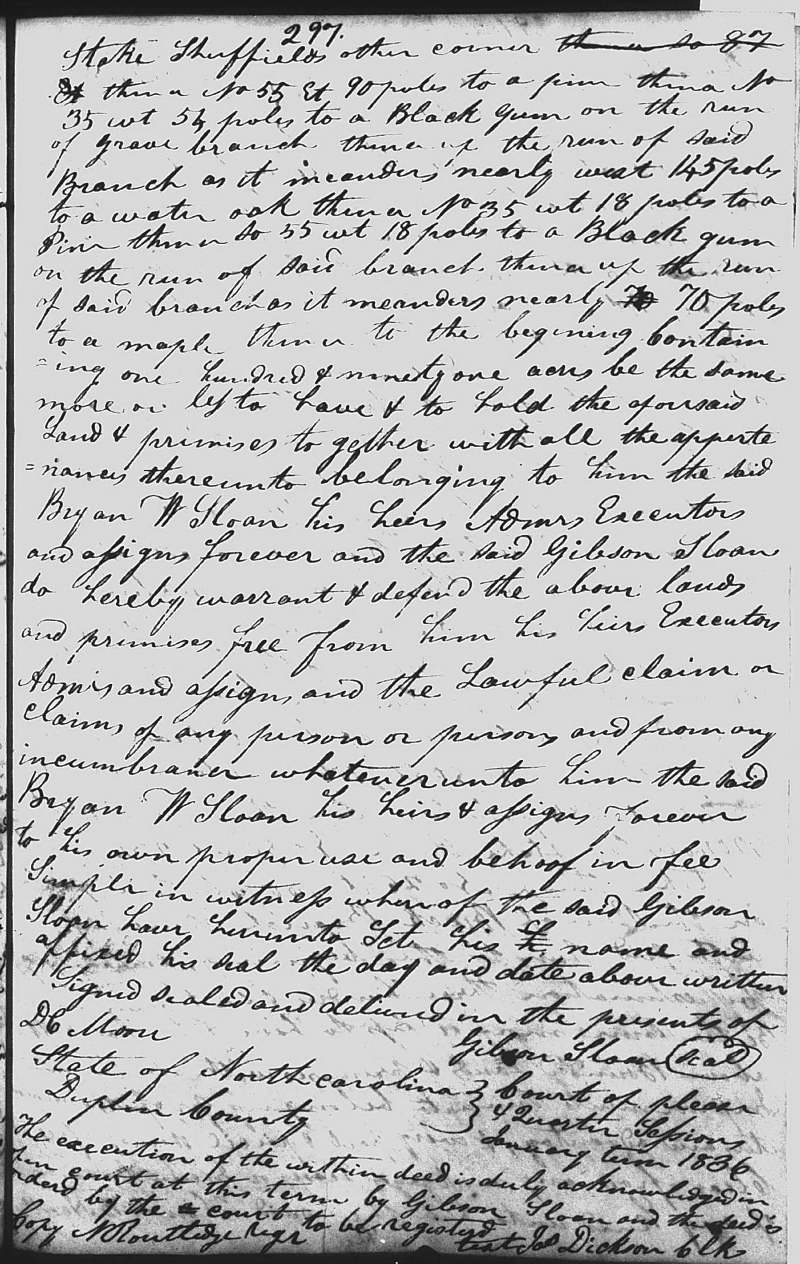 297.
Stake Sheffields other corner thence so 87
Et thence No 55 Et 90 poles to a pine thence No
35 wt 54 poles to a Black gum on the run
of Grave branch thence up the run of said
Branch as it meanders nearly west 145 poles
to a water oak thence No 35 wt 18 poles to a
Pine thence so 55 wt 18 poles to a Black gum
on the run of said branch thence up the run
of said branch as it meanders nearly 70 70 poles
to a maple thence to the begining Contain
=ing one hundred & ninety one acres be the same
more or less to have & to hold the aforsaid
Land & primises to gether with all the apperte
=nances thereunto belonging to him the said
Bryan W Sloan his heirs Admrs Executors
and assigns forever and the said Gibson Sloan
do hereby warrant & defend the above lands
and primises free from him his heirs Executors
Admrs and assigns and the Lawful claim or
claims of any person or persons and from any
incumbrance whatever unto him the said
Bryan W Sloan his heirs & assigns forever
to his own proper use and behoof in fee
Simple in witness whereof the said Gibson
Sloan have hereunto Set his name and
affixed his seal the day and date above written
Signed sealed and delivered in the presents of
DC Moore
Gibson Sloan seal
State of North carolina } Court of pleas
Duplin County } & Quarter Sessions
January term 1836
The execution of the within deed is duly acknowledged in
open court at this term by Gibson Sloan and the deed is
ordered by the court to be registerd
Copy N Routledge regr test Jas Dickson Clk